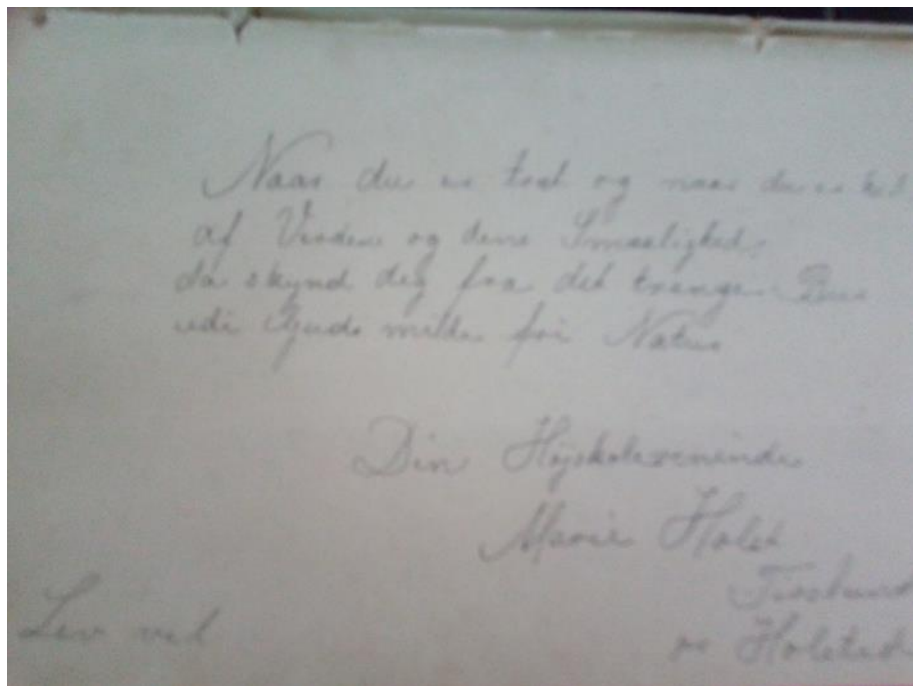 Naar du er træt og naar du er
af Verden og dens Smaalighed.
da skynd dig fra det trange Bur
udi Guds milde fri Natur
Din Højskoleveninde
Marie Holst
Lev vel